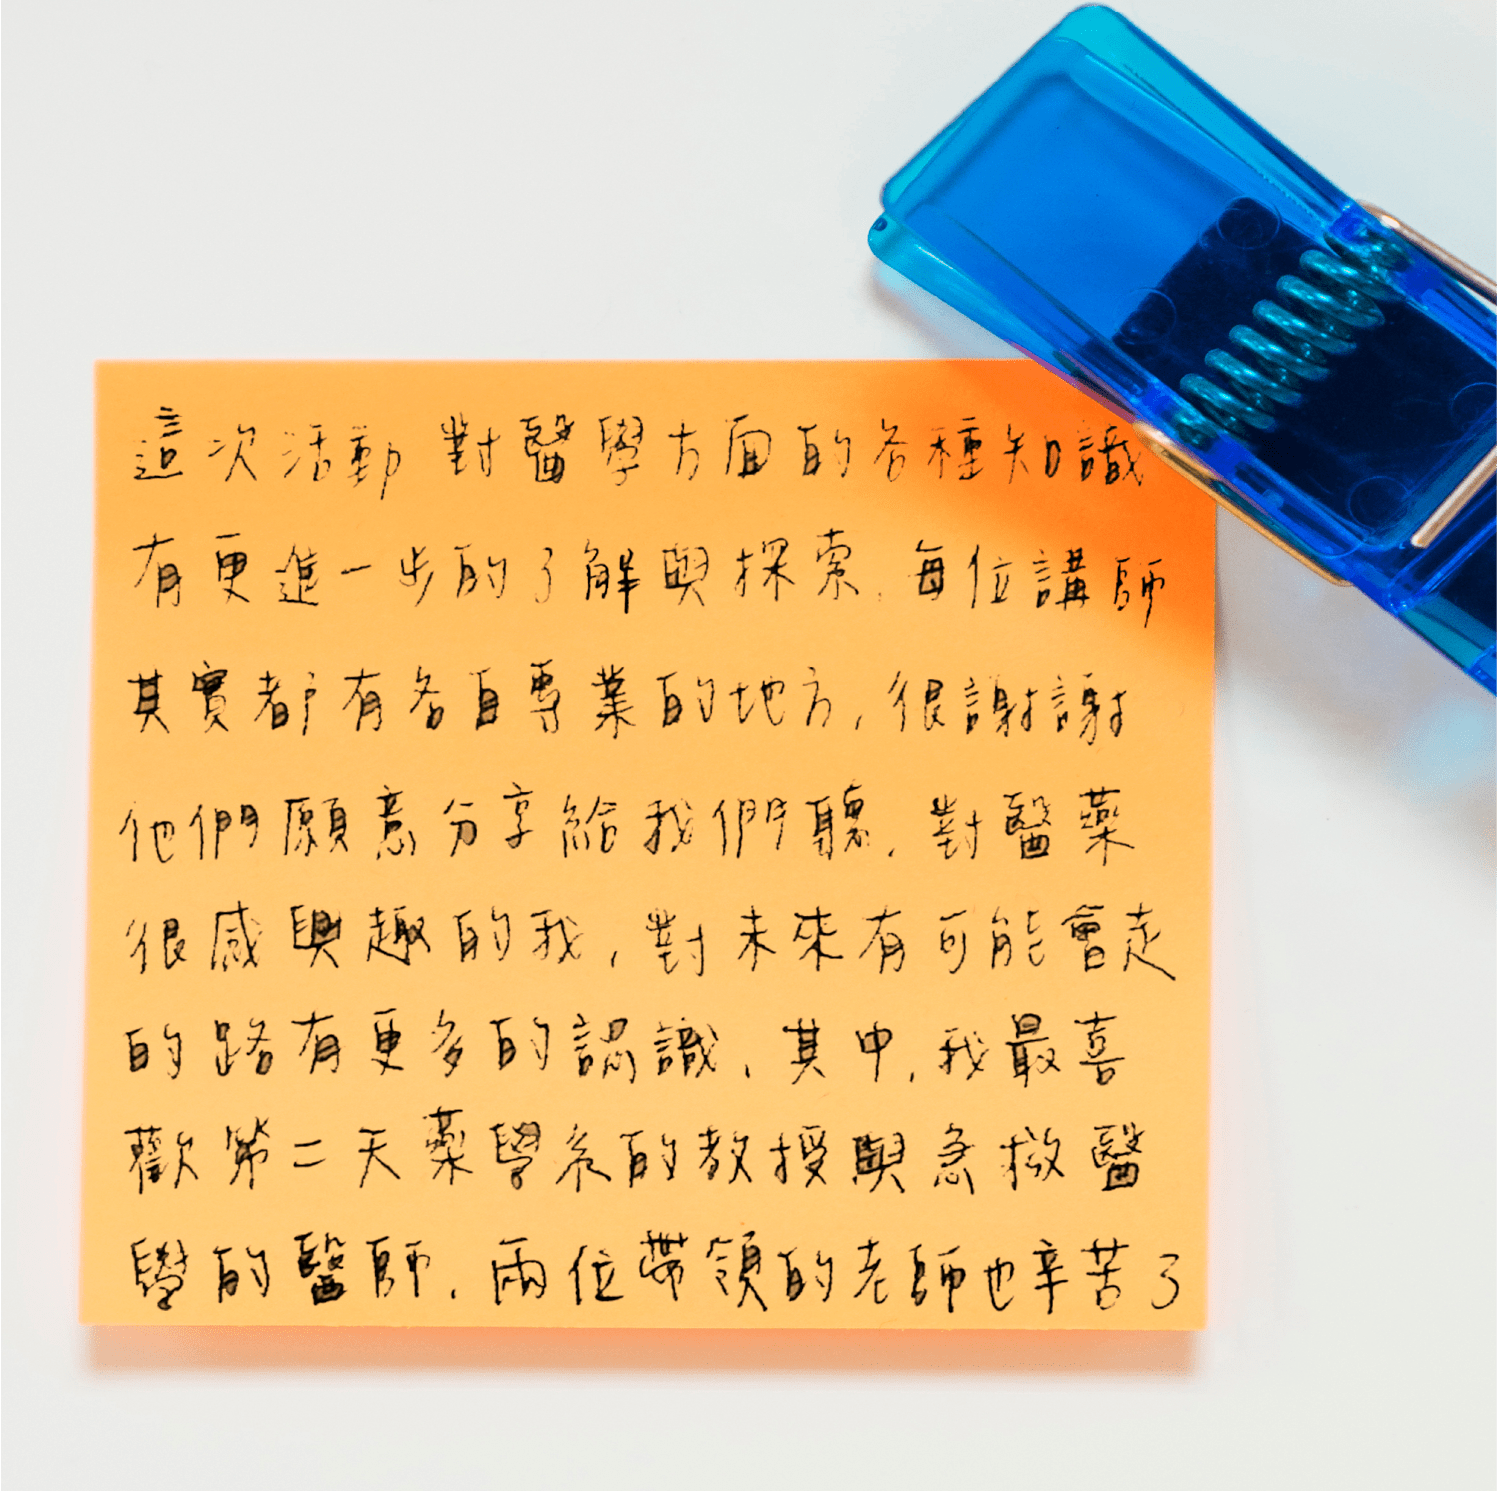 這次活動對醫學方面的各種知識
有更進一步的了解與探索,每位講師
其實都有各自專業的地方,很謝謝
他們願意分享給我們聽,對醫藥
很感興趣的我,對未來有可能會走
的路有更多的認識,其中,我最喜
歡第二天藥學系的教授與急救醫
學的醫師,兩位帶領的老師也辛苦了